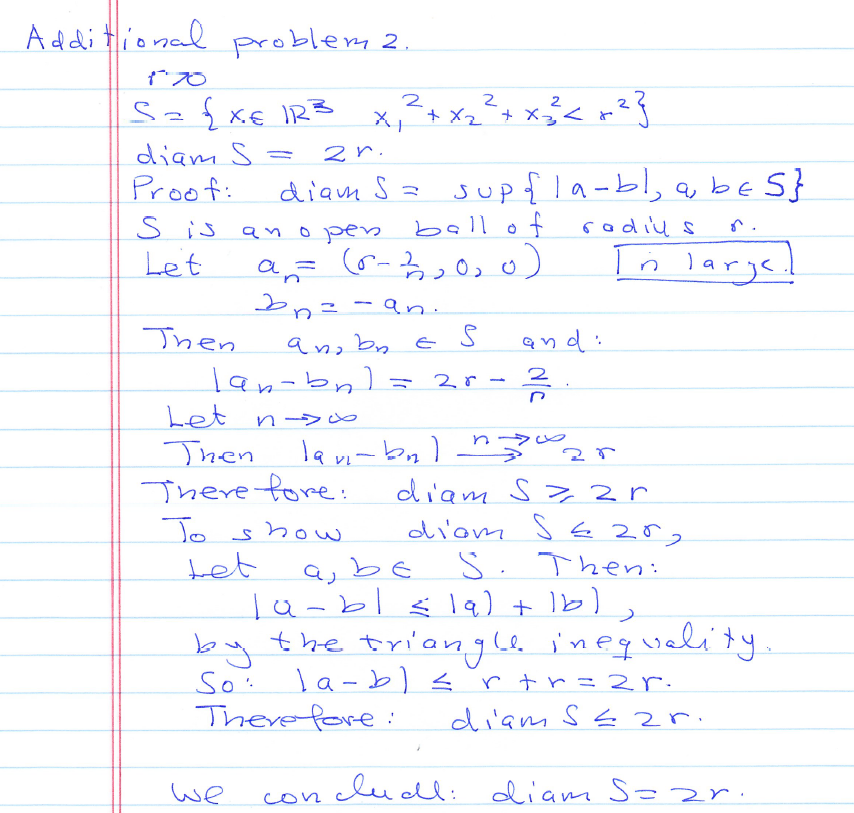 Additional problem 2.
r>0
S = { x ∈ ℝ³ x₁² + x₂² + x₃² < r² }
diam S = 2r.
Proof: diam S = sup{ |a-b|, a, b ∈ S }
S is an open ball of radius r.
Let aₙ = (r - 2/n, 0, 0) n large.
bₙ = -aₙ.
Then aₙ, bₙ ∈ S and:
|aₙ - bₙ| = 2r - 2/n.
Let n → ∞
Then |aₙ - bₙ| n→∞ → 2r
Therefore: diam S ≥ 2r
To show diam S ≤ 2r,
Let a, b ∈ S. Then:
|a - b| ≤ |a| + |b|,
by the triangle inequality.
So: |a - b| ≤ r + r = 2r.
Therefore: diam S ≤ 2r.
We conclude: diam S = 2r.